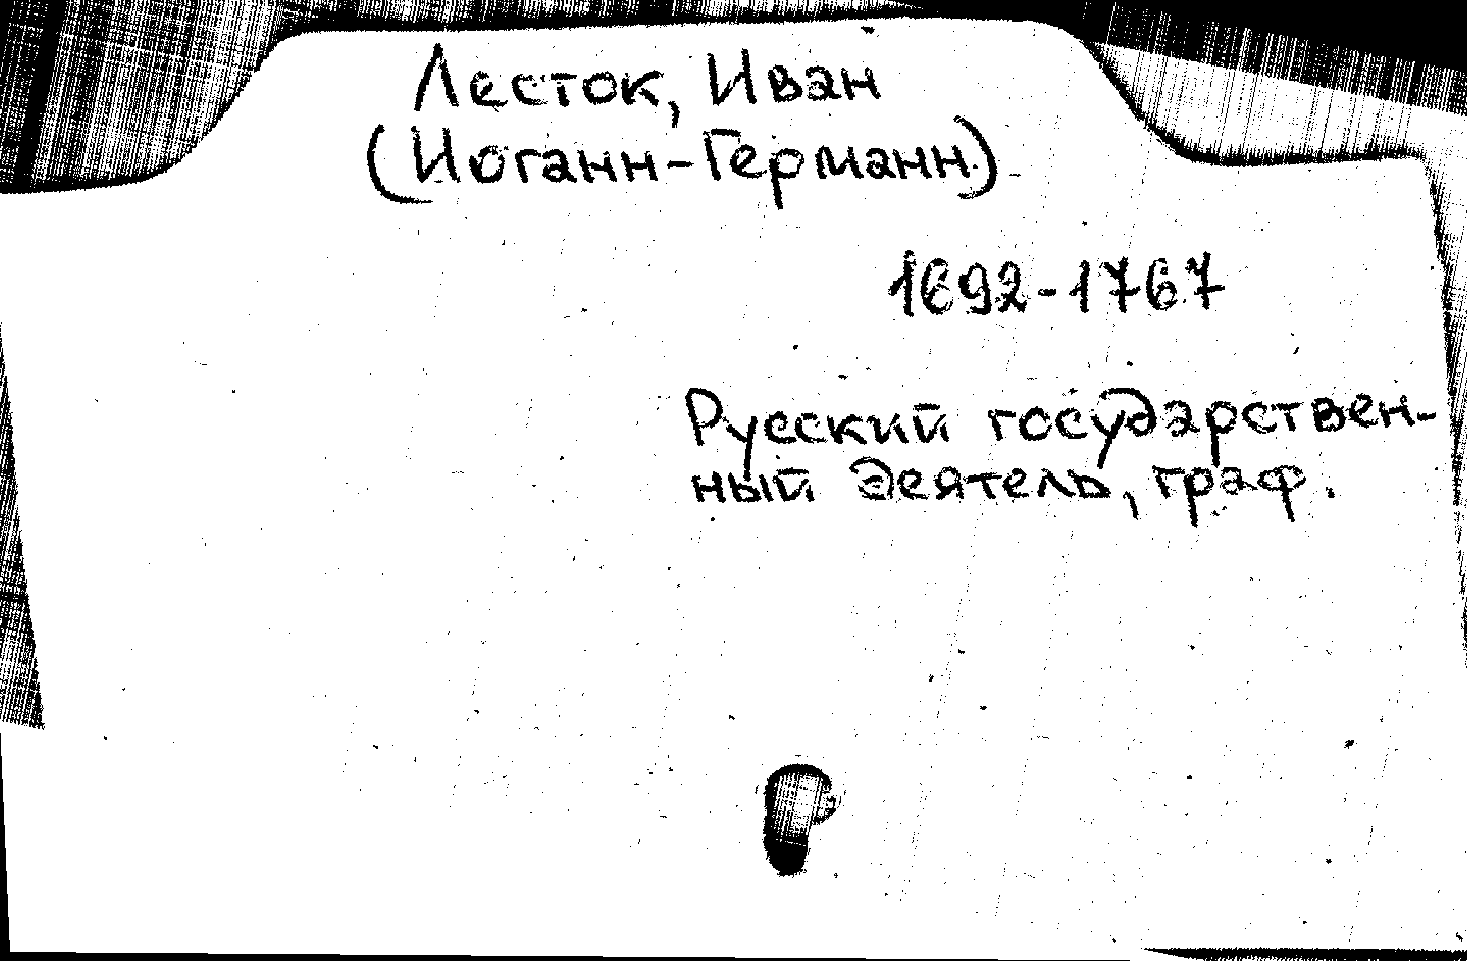 Лесток, Иван
(Иоганн-Германн)
1692-1767
Русский государствен-
ный деятель, граф.